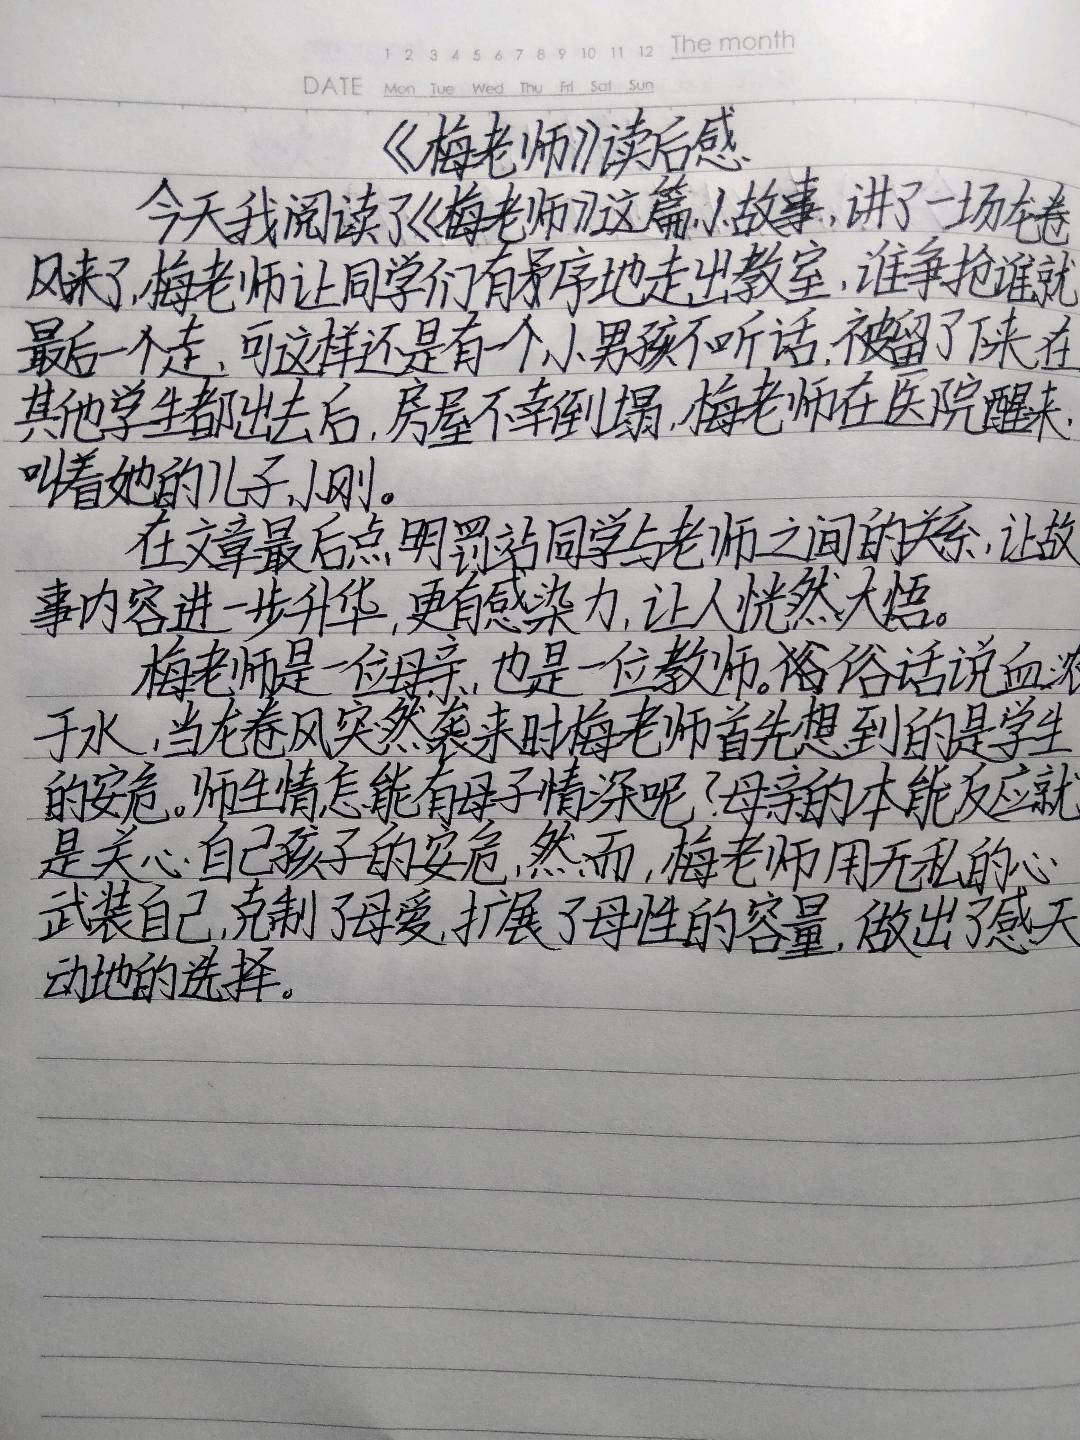 1 2 3 4 5 6 7 8 9 10 11 12 The month
DATE Mon Tue Wed Thu Fri Sat Sun
《梅老师》读后感
今天我阅读了《梅老师》这篇小故事,讲了一场龙卷
风来了,梅老师让同学们有矛序地走出教室,谁争抢谁就
最后一个走,可这样还是有一个小男孩不听话,被留了下来,在
其他学生都出去后,房屋不幸倒塌,梅老师在医院醒来,
叫着她的儿子小刚。
在文章最后点明罚站同学与老师之间的关系,让故
事内容进一步升华,更有感染力,让人恍然大悟。
梅老师是一位母亲,也是一位教师。俗俗话说血浓
于水,当龙卷风突然袭来时梅老师首先想到的是学生
的安危。师生情怎能有母子情深呢?母亲的本能反应就
是关心自己孩子的安危,然而,梅老师用无私的心
武装自己,克制了母爱,扩展了母性的容量,做出了感天
动地的选择。